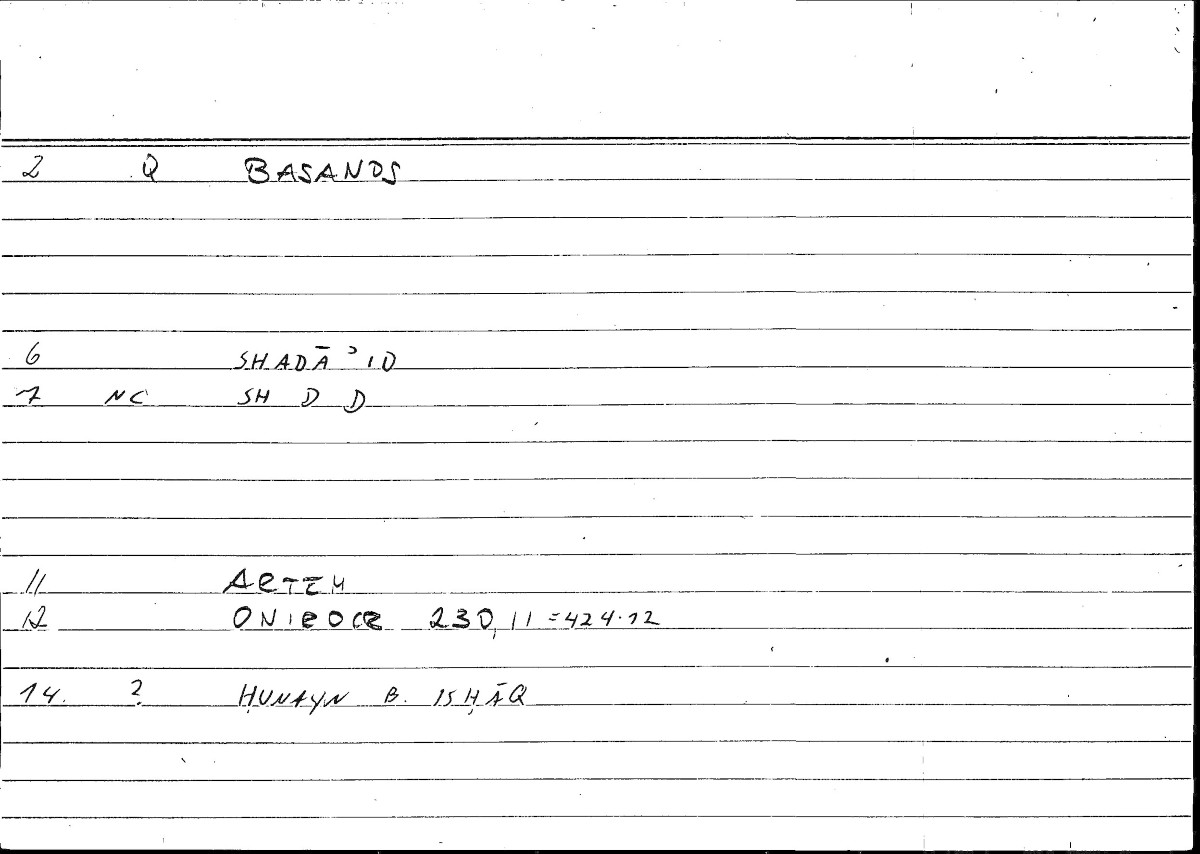 2 Q BASANOS
6 SHADĀʾID
7 NC SH D D
11 ARTEM
12 ONIROCR 230,11=424.12
14. ? ḤUNAYN B. ISḤĀQ